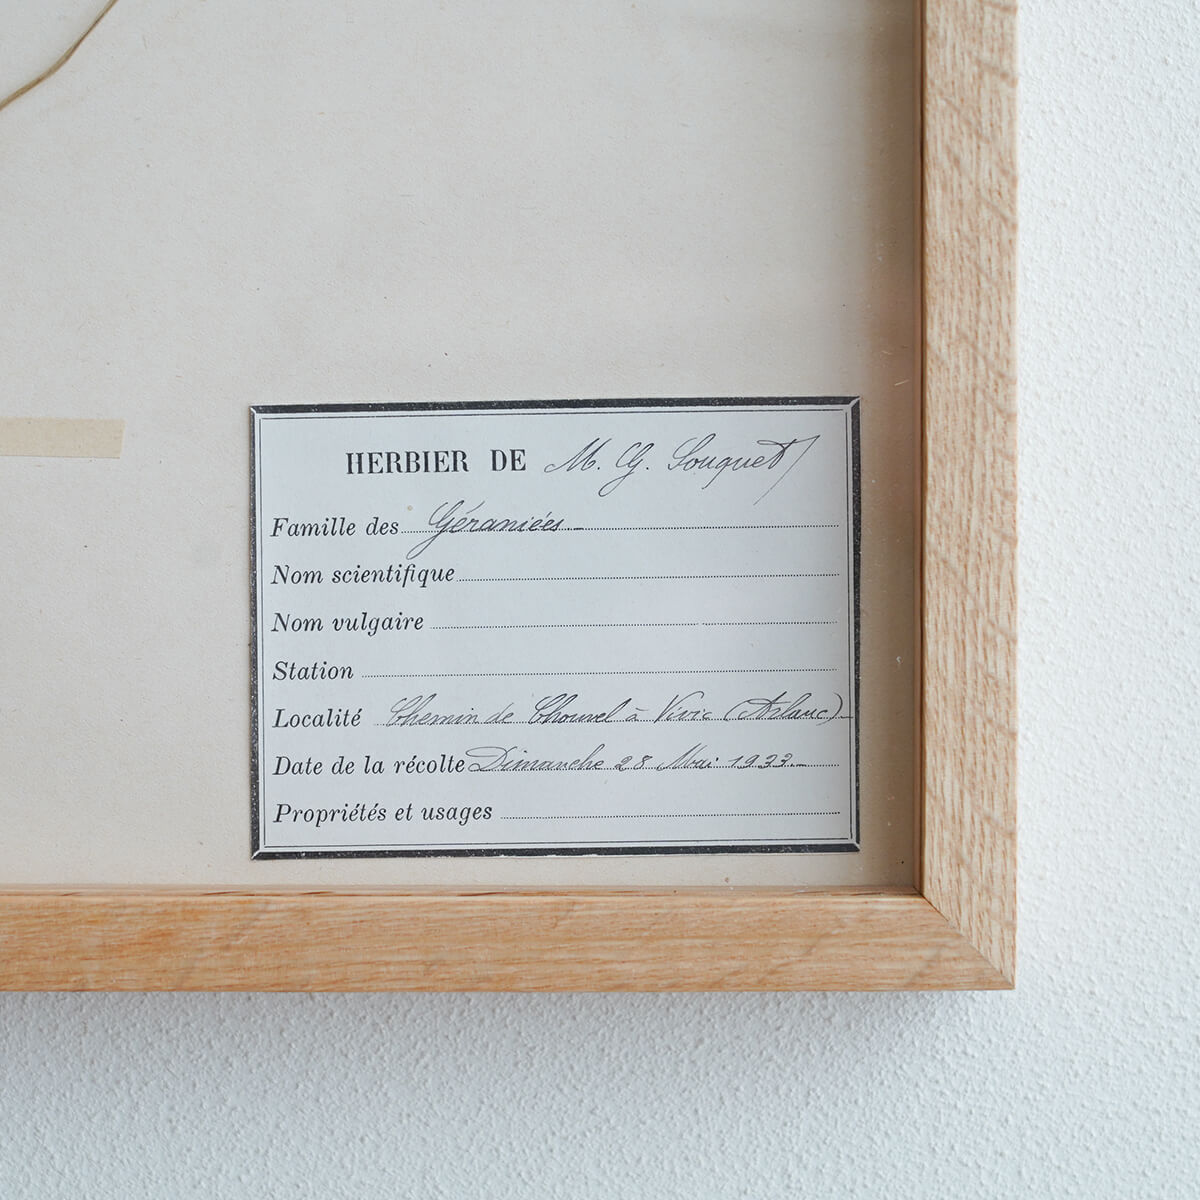 HERBIER DE M. G. Souquet
Famille des Géraniées
Nom scientifique
Nom vulgaire
Station
Localité Chemin de Chouvel à Vivic (Arlanc)
Date de la récolte Dimanche 28 Mai 1933
Propriétés et usages